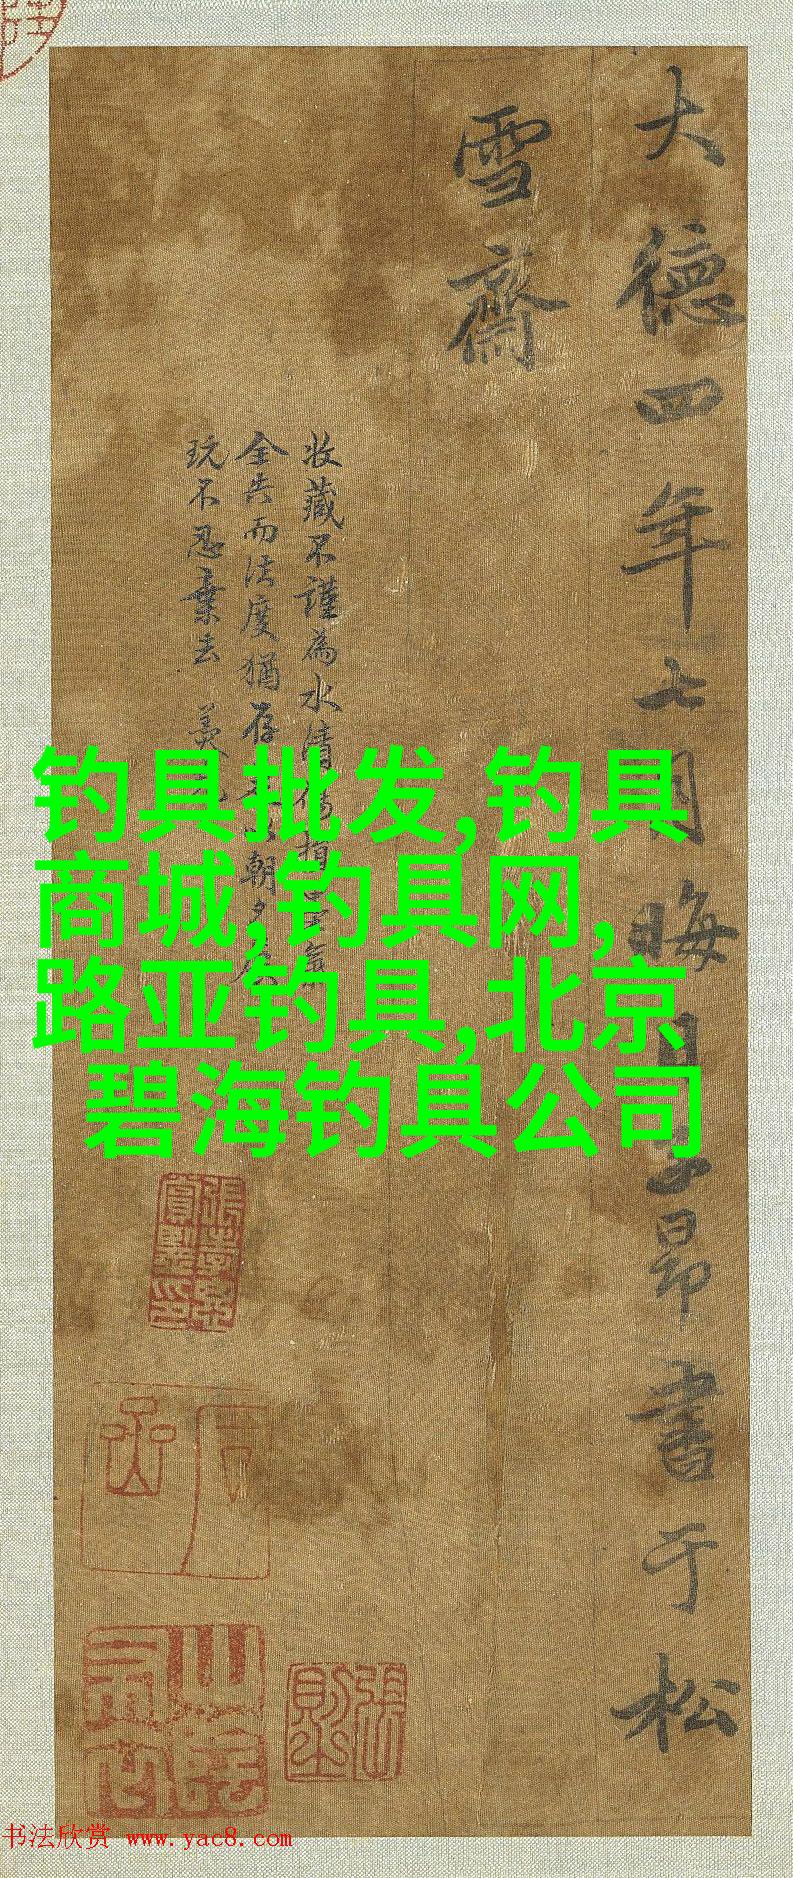 大德四年七月晦日子昂書于松
雪齋
收藏不謹為水漬傷損
全失而法度猶存朝夕展
玩不忍棄去
钓具批发,钓具
商城,钓具网,
路亚钓具,北京
碧海钓具公司
书法欣赏 www.yac8.com